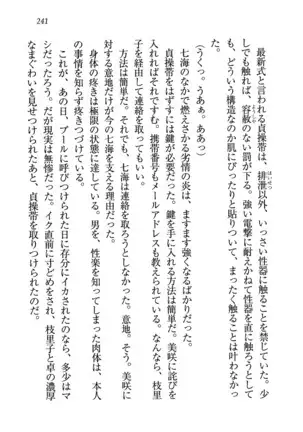 241
最新式と言われる貞操帯は、排泄以外、いっさい性器に触ることを許さない。少
しでも触れば、容赦のない罰が下る。強い電撃に耐えかねて性器を直に触ろうとして
も、どういう構造なのか肌にぴったりと貼りついて、まったく触ることは叶わなかっ
た。
（うくっ。うあぁ。あぁっ）
七海のなかで燃えさかる劣情の炎は、ますます強くなるばかりだった。
貞操帯をはずすには鍵が必要だった。鍵を手に入れる方法は簡単だ。美咲に詫びを
入れればいい。それだけですむ。携帯番号もメールアドレスも教えられている。なんなら、枝里
子を経由して連絡を取ってもいい。
方法は簡単だ。それでも、七海は連絡を取ろうとしなかった。意地。そう。美咲に
対する意地だけが今の七海を支える理由だった。
身体の疼きは限界の状態に達している。男を、性楽を知ってしまった肉体は、本人
の事情を知らず疼きつづけている。
これが、あの日、プールに呼びつけられた日に存分にイカされたのなら、多少はマ
シだったろう。だが現実は無惨だった。イク直前に寸止めをされ、枝里子と卓の濃厚
なまぐわいを見せつけられたあと、貞操帯を取りつけられたのだ。